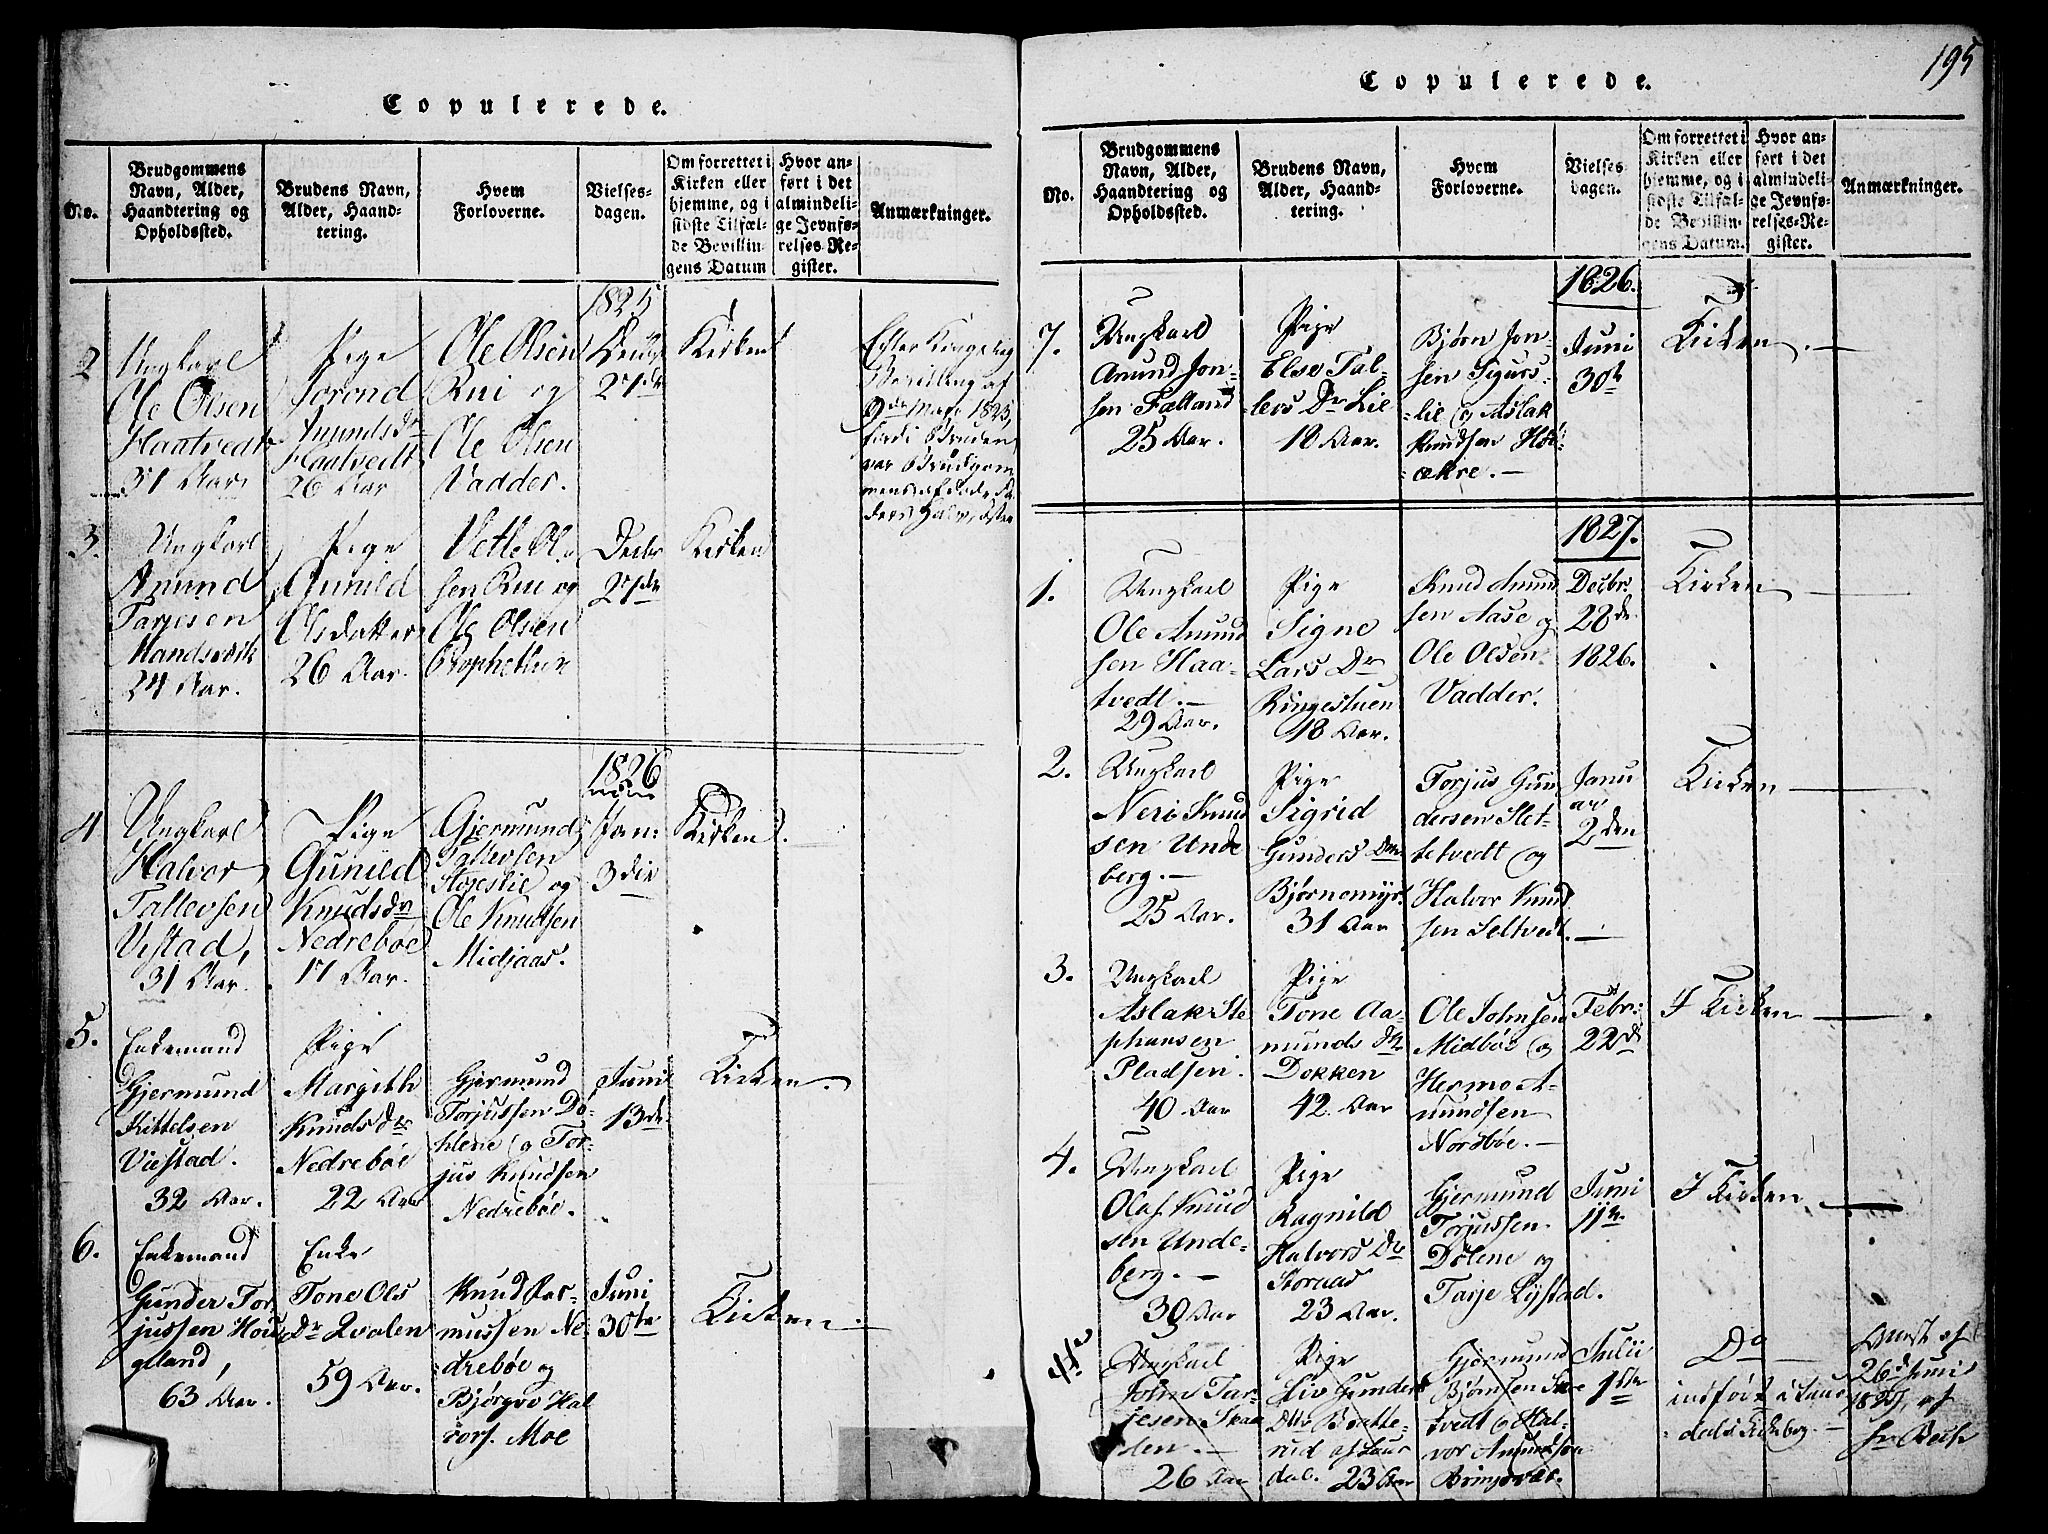 Copulerede.
No.
Brudgommens
Navn, Alder,
Haandtering og
Opholdssted.
Brudens Navn,
Alder, Haand-
tering.
Hvem
Forloverne.
Vielses-
dagen.
Om forrettet i
Kirken eller
hjemme, og i
sidste Tilfæl-
de Bevillin-
gens Datum
Hvor an-
ført i det
almindeli-
ge Jevnfø-
relses-Re-
gister.
Anmærkninger.
1825
2
Ungkarl
Ole Olsen
Haatvedt
31 Aar
Pige
Jorond
Amunds Dr
Haatvedt
26 Aar
Ole Olsen
Rui og
Ole Olsen
Vadder.
27de
Kirken
Efter Kongelig
Bevilling af
1825,
fordi Bruden
var Brudgom
3.
Ungkarl
Amund
Tarjesen
Mandsvik
24 Aar.
Pige
Gunild
Olsdatter
26 Aar.
Vetle Ol
sen Rui og
Ole Olsen
Decbr
27de
Kirken
1826
4
Ungkarl
Halvor
Tallevsen
Vistad,
31 Aar.
Pige
Gunild
Knudsdr
Nedrebøe
17 Aar.
Gjermund
Tallevsen
og
Ole Knudsen
Midjaas.
Jan:
3die
Kirken.
5.
Enkemand
Gjermund
Kittelsen
Viestad.
32 Aar.
Pige
Margith
Knudsdtr
Nedrebøe
22 Aar
Gjermund
Torjussen Dø-
hlene og Tor-
jus Knudsen
Nedrebøe.
Juni
13de
Kirken.
6.
Enkemand
Gunder Tor
jussen Hou
gland,
63 Aar.
Enke
Tone Ols
Dr Qvalen
59 Aar.
Knud Ras-
mussen Ne-
drebøe og
Bjørgvo Hal
vors. Moe
Juni
30te
Kirken.
195
Copulerede.
No.
Brudgommens
Navn, Alder,
Haandtering og
Opholdssted.
Brudens Navn,
Alder, Haand-
tering.
Hvem
Forloverne.
Vielses-
dagen.
Om forrettet i
Kirken eller
hjemme, og i
sidste Tilfæl-
de Bevillin-
gens Datum.
Hvor an-
ført i det
almindeli-
ge Jevnfø-
relses-Re-
gister.
Anmærkninger.
1826.
7.
Ungkarl
Amund Jon-
sen Fælland
25 Aar.
Pige
Else Tal-
levs Dr Lie
18 Aar.
Bjørn Jon-
sen Sigurs-
lie og Aslak
Knudsen Høi-
ækre.
Juni
30te
Kirken.
1827.
1.
Ungkarl
Ole Amund
sen Haa-
tvedt.
29 Aar.
Pige
Signe
Lars Dr
Ringestuen
18 Aar.
Knud Amund
sen Aase og
Ole Olsen
Vadder.
Decbr.
28de
1826.
Kirken
2.
Ungkarl
Neri Knud
sen Unde
berg.
25 Aar.
Pige
Sigrid
Gunders Dtr
Bjørnemyr.
31 Aar
Torjus Gun
dersen Slet-
tetvedt og
Halvor Knud
sen Seltvedt.
Janu
ar
2den
Kirken
3.
Ungkarl
Aslak Ste
phansen
Pladsen.
40 Aar
Pige
Tone Aa-
munds Dr
Dokken
42 Aar
Ole Johnsen
Midbøe og
Hermo A-
mundsen
Nordbøe.
Febr:
22de
I Kirken
4.
Ungkarl
Olaf Knud
sen Unde-
berg.
30 Aar
Pige
Ragnild
Halvors Dr
Storaas
23 Aar.
Gjermund
Torjussen
Dølene og
Tarje Lystad.
Juni
11te
I Kirken
Ungkarl
John Tar-
jesen Skaa
len.
26 Aar
Pige
Liv Gunders
Dtr Bratte-
rud af Laur
dal. 23 Aar
Gjermund
Bjørnsen
tvedt og Hal-
vor Amundsen
Bringsvær.
Julii
1ste
Do
indført i Laur
dals Kirkebog.
Attest af
26de Juni
1827, af